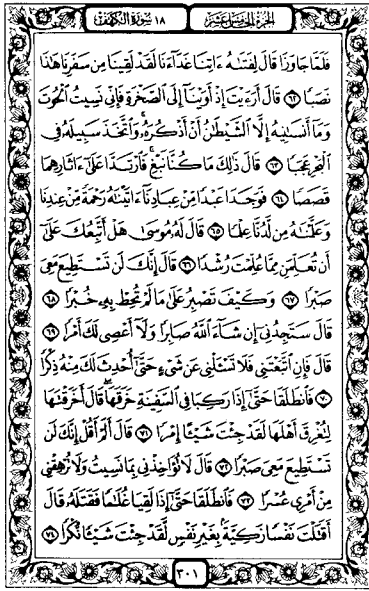 الجزء الخامس عشر ١٨ سورة الكهف
فَلَمَّا جَاوَزَا قَالَ لِفَتَىٰهُ ءَاتِنَا غَدَآءَنَا لَقَدْ لَقِينَا مِن سَفَرِنَا هَٰذَا
نَصَبًا ٦٢ قَالَ أَرَءَيْتَ إِذْ أَوَيْنَآ إِلَى ٱلصَّخْرَةِ فَإِنِّى نَسِيتُ ٱلْحُوتَ
وَمَآ أَنسَىٰنِيهُ إِلَّا ٱلشَّيْطَٰنُ أَنْ أَذْكُرَهُۥ وَٱتَّخَذَ سَبِيلَهُۥ فِى
ٱلْبَحْرِ عَجَبًا ٦٣ قَالَ ذَٰلِكَ مَا كُنَّا نَبْغِ فَٱرْتَدَّا عَلَىٰٓ ءَاثَارِهِمَا
قَصَصًا ٦٤ فَوَجَدَا عَبْدًا مِّنْ عِبَادِنَآ ءَاتَيْنَٰهُ رَحْمَةً مِّنْ عِندِنَا
وَعَلَّمْنَٰهُ مِن لَّدُنَّا عِلْمًا ٦٥ قَالَ لَهُۥ مُوسَىٰ هَلْ أَتَّبِعُكَ عَلَىٰٓ
أَن تُعَلِّمَنِ مِمَّا عُلِّمْتَ رُشْدًا ٦٦ قَالَ إِنَّكَ لَن تَسْتَطِيعَ مَعِىَ
صَبْرًا ٦٧ وَكَيْفَ تَصْبِرُ عَلَىٰ مَا لَمْ تُحِطْ بِهِۦ خُبْرًا ٦٨
قَالَ سَتَجِدُنِىٓ إِن شَآءَ ٱللَّهُ صَابِرًا وَلَآ أَعْصِى لَكَ أَمْرًا ٦٩
قَالَ فَإِنِ ٱتَّبَعْتَنِى فَلَا تَسْـَٔلْنِى عَن شَىْءٍ حَتَّىٰٓ أُحْدِثَ لَكَ مِنْهُ ذِكْرًا
٧٠ فَٱنطَلَقَا حَتَّىٰٓ إِذَا رَكِبَا فِى ٱلسَّفِينَةِ خَرَقَهَا قَالَ أَخَرَقْتَهَا
لِتُغْرِقَ أَهْلَهَا لَقَدْ جِئْتَ شَيْـًٔا إِمْرًا ٧١ قَالَ أَلَمْ أَقُلْ إِنَّكَ لَن
تَسْتَطِيعَ مَعِىَ صَبْرًا ٧٢ قَالَ لَا تُؤَاخِذْنِى بِمَا نَسِيتُ وَلَا تُرْهِقْنِى
مِنْ أَمْرِى عُسْرًا ٧٣ فَٱنطَلَقَا حَتَّىٰٓ إِذَا لَقِيَا غُلَٰمًا فَقَتَلَهُۥ قَالَ
أَقَتَلْتَ نَفْسًا زَكِيَّةًۢ بِغَيْرِ نَفْسٍ لَّقَدْ جِئْتَ شَيْـًٔا نُّكْرًا ٧٤
٣٠١